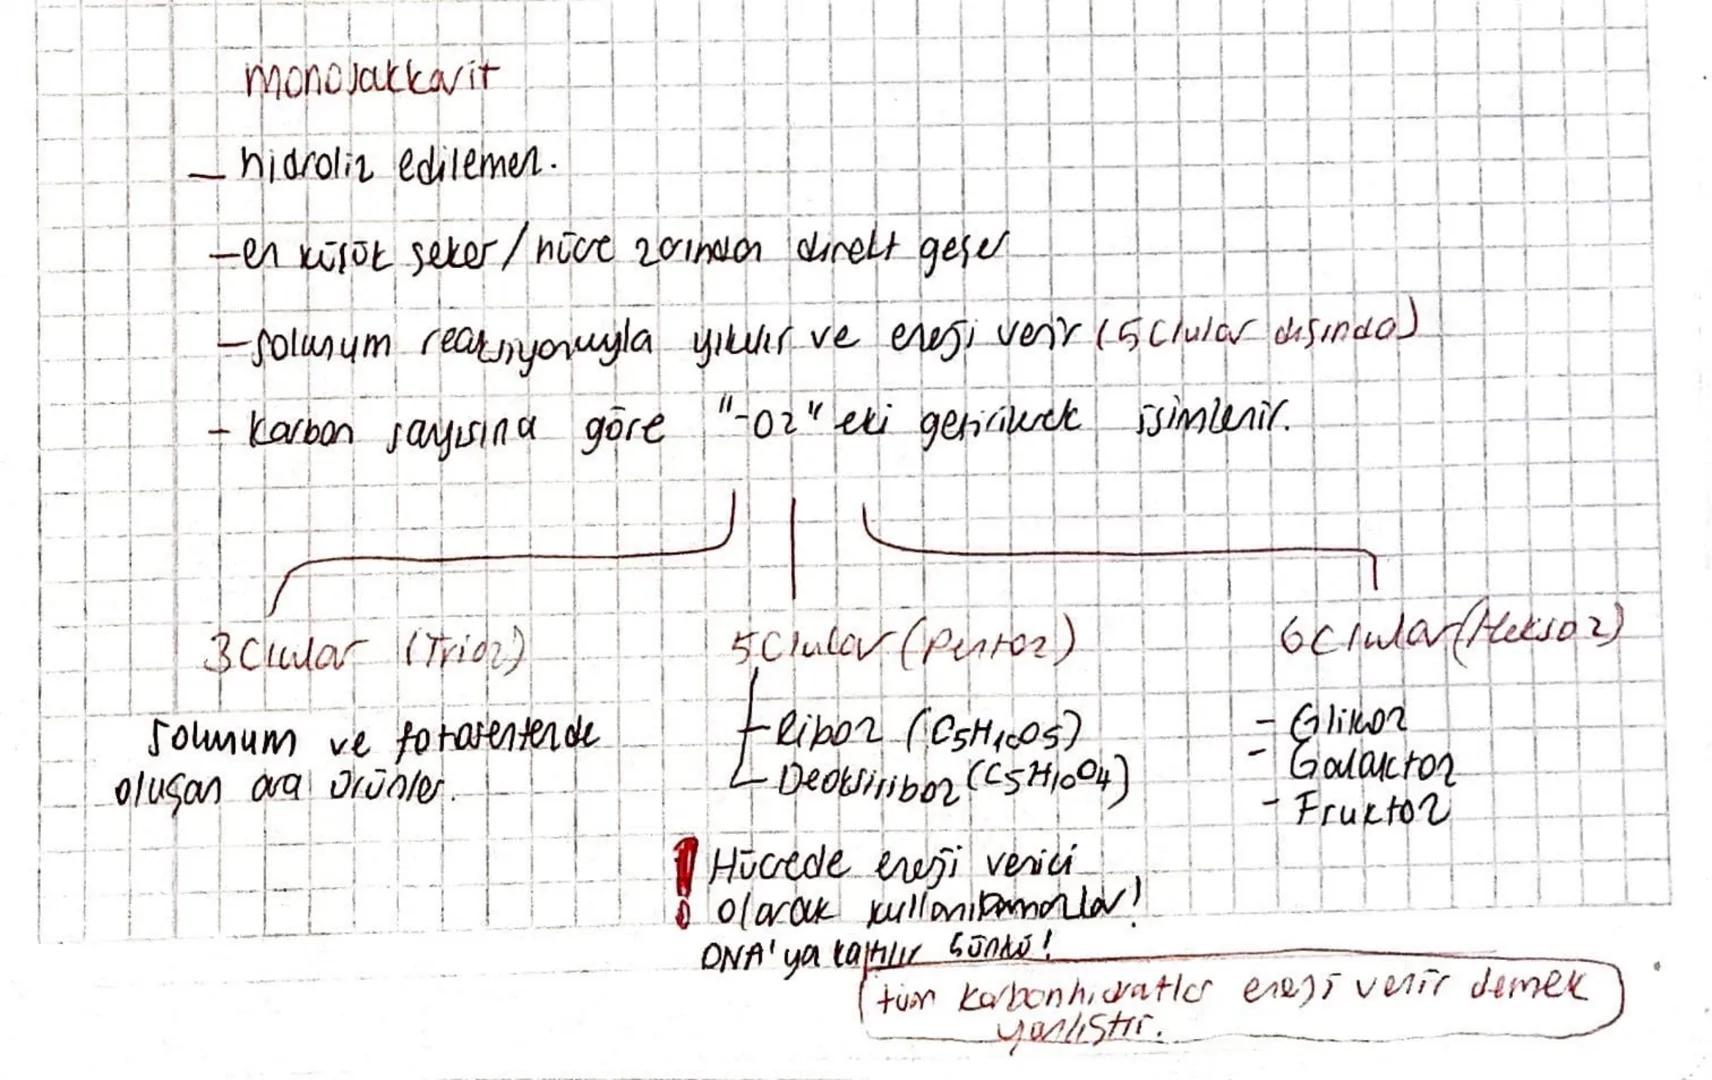 monosakkarit
- hidroliz edilemez.
- en küçük şeker / hücre zarından direkt geçer
- solunum reaksiyonuyla yıkılır ve enerji verir (5C'lular dışında)
- karbon sayısına göre "-oz" eki getirilerek isimlenir.
3C'lular (Trioz)
5C'lular (Pentoz)
6C'lular (Heksoz)
Solunum ve fotosentezde
oluşan ara ürünler.
Riboz (C5H10O5)
Deoksiriboz (C5H10O4)
- Glikoz
- Galaktoz
- Fruktoz
! Hücrede enerji verici
olarak kullanılamazlar!
DNA'ya katılır çünkü!
tüm karbonhidratlar enerji verir demek
yanlıştır.